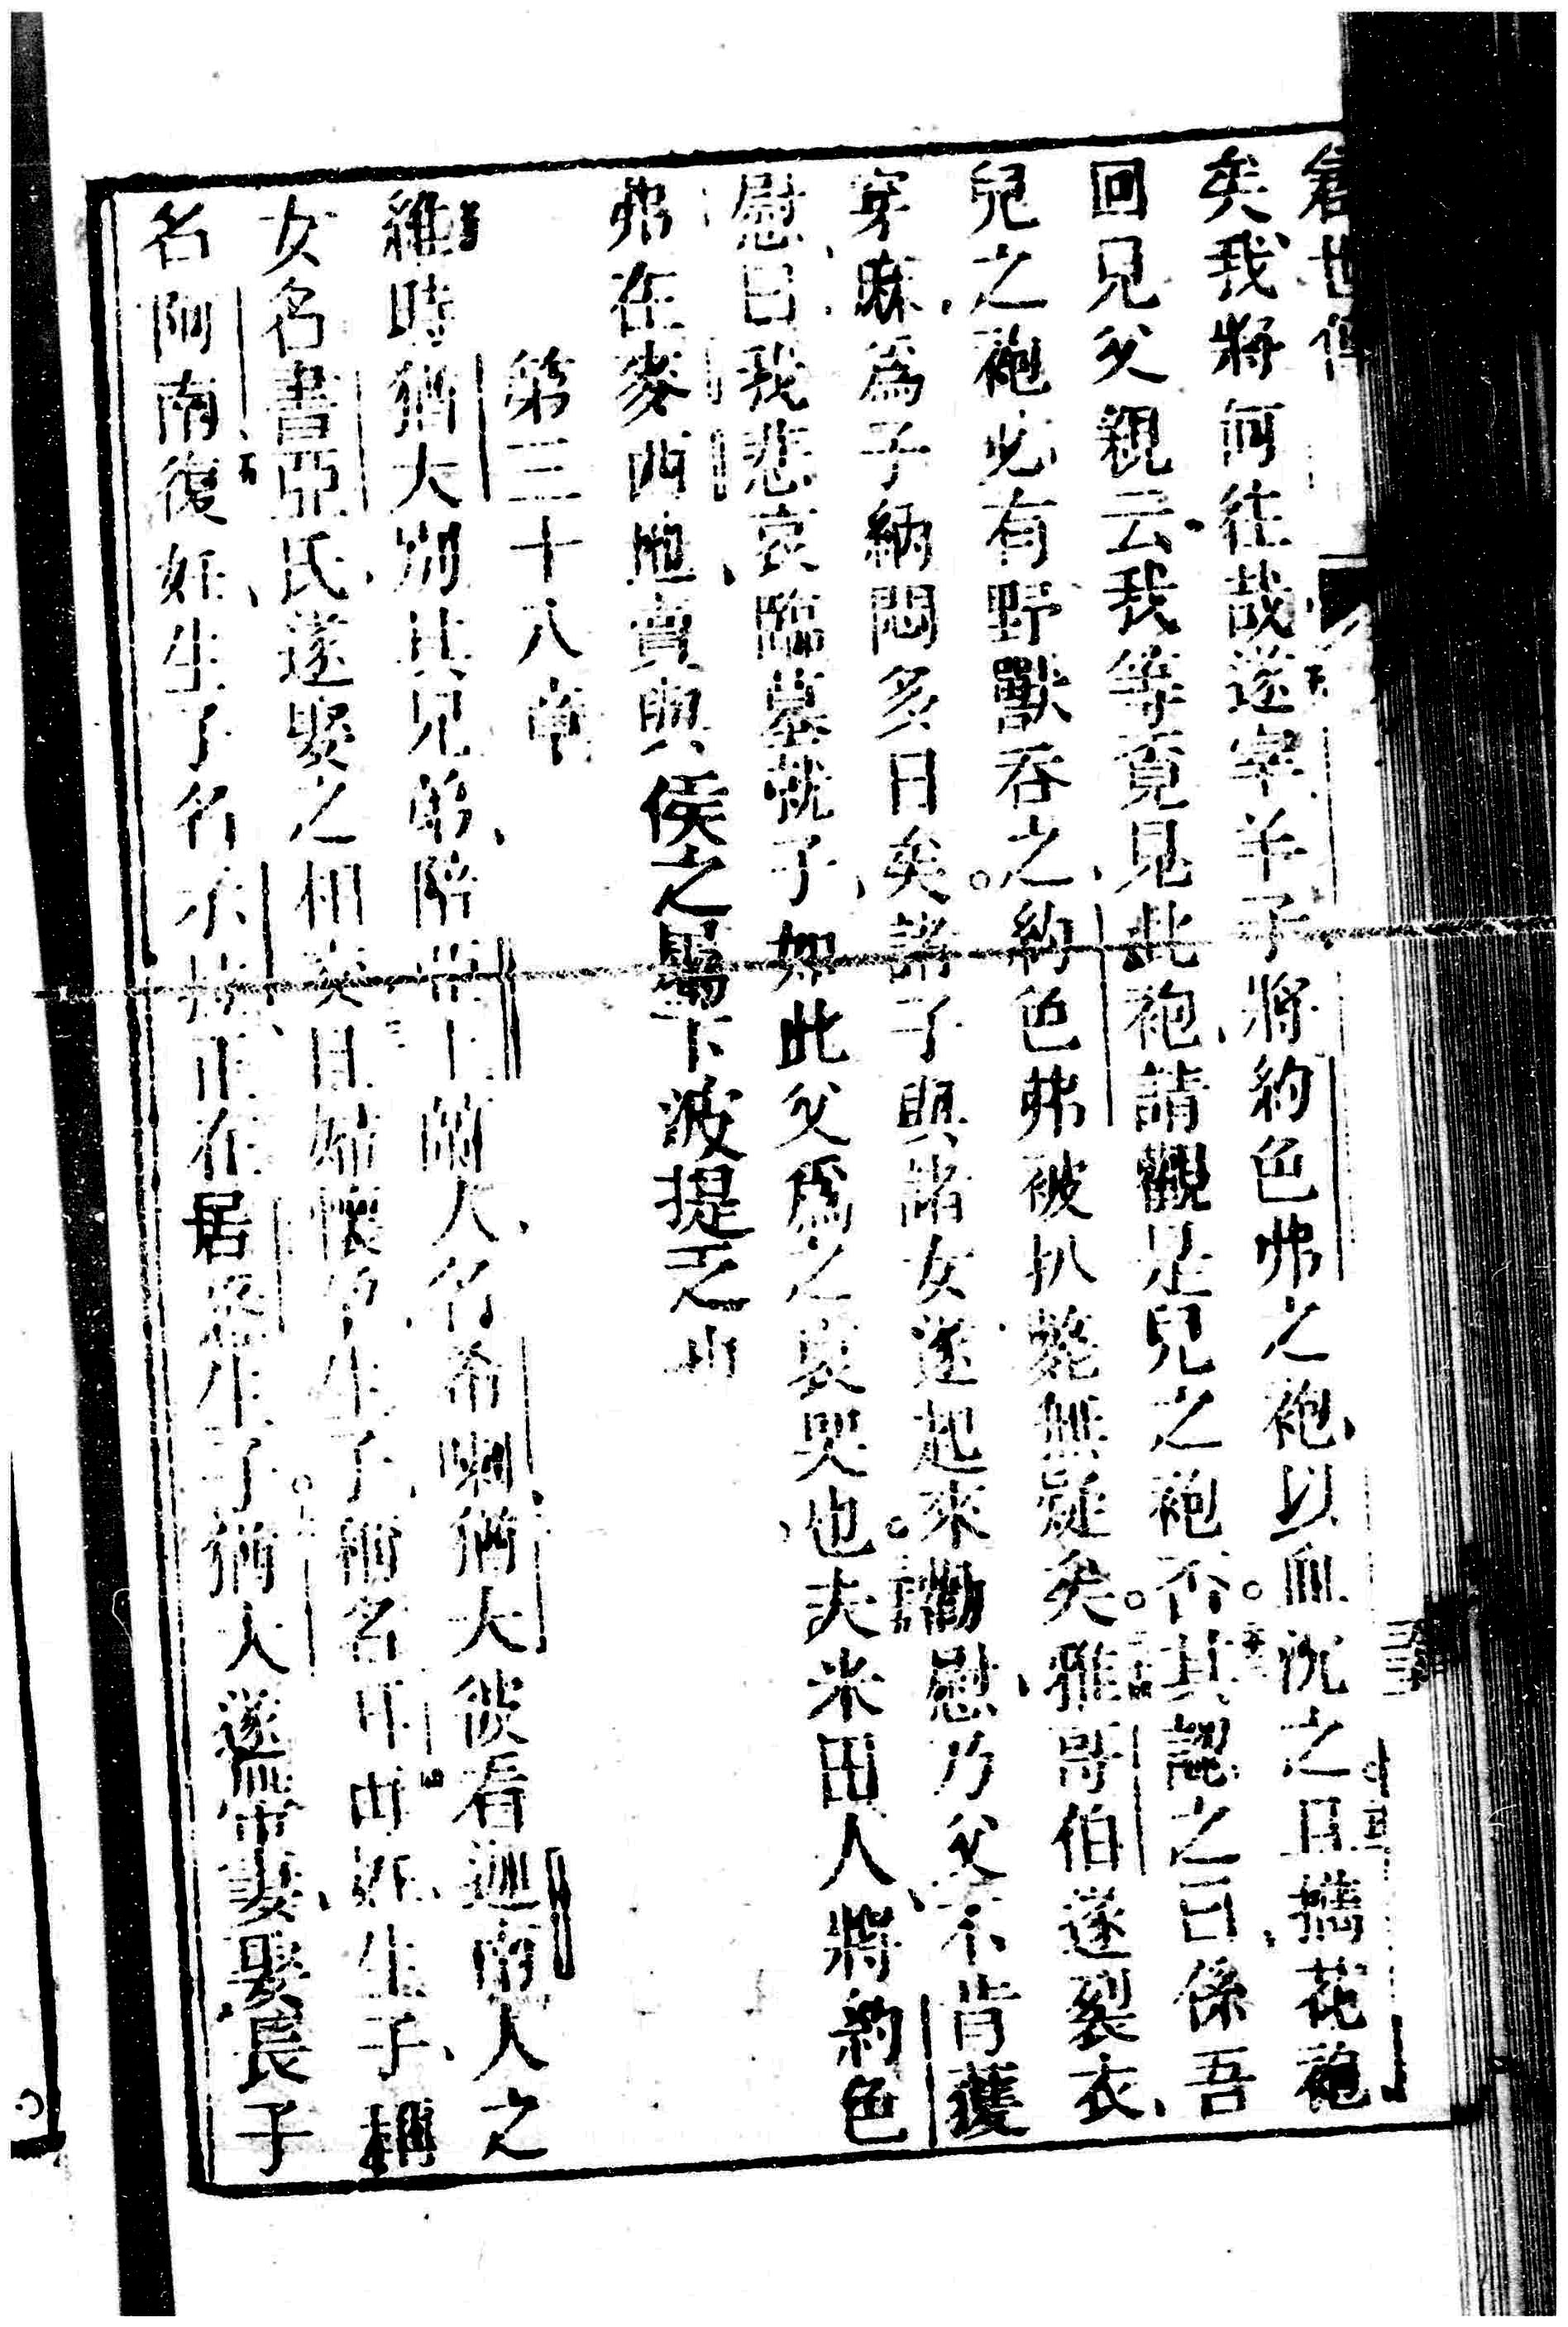 矣我將何往哉遂宰羊子將約色弗之袍以血沉之且攜花袍
回見父親云我等覓見此袍請觀是兒之袍否其認之曰係吾
兒之袍必有野獸吞之約色弗被扒斃無疑矣雅哥伯遂裂衣
穿麻爲子納悶多日矣諸子與諸女遂起來勸慰乃父不肯獲
慰曰我悲哀臨墓就子如此父爲之哀哭也夫米田人將約色
弗在麥西地賣與侯之屬下波提乏也
第三十八章
維時猶大別其兄弟陪亞土蘭人名希喇猶大彼看迦南人之
女名書亞氏遂娶之相交且婦懷孕生子稱名耳再妊生子稱
名阿南復妊生子名示拉正在居悉生子猶大遂
娶長子